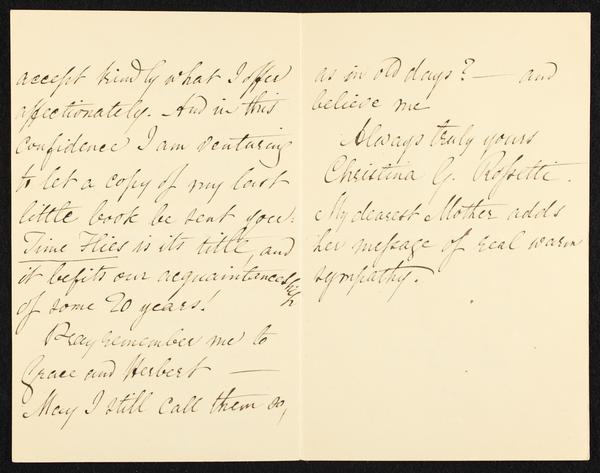 accept kindly what I offer
affectionately. And in this
confidence I am venturing
to let a copy of my last
little book be sent you:
Time Flies is its title, and
it befits our acquaintanceship
of some 20 years!
Pray remember me to
Grace and Herbert —
May I still call them so,
as in old days? — and
believe me
Always truly yours
Christina G. Rossetti.
My dearest Mother adds
her message of real warm
sympathy.